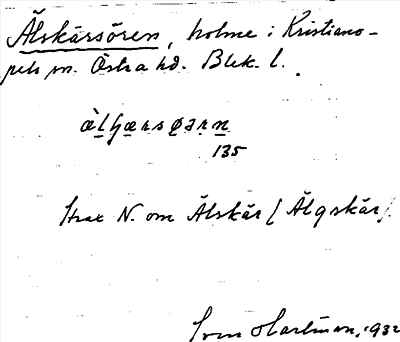 Älskärsören, holme i Kristiano-
pels sn. Östra hd. Blek. l.
135
Strax N. om Älskär (Älgskär).
Sven Hartman, 1932